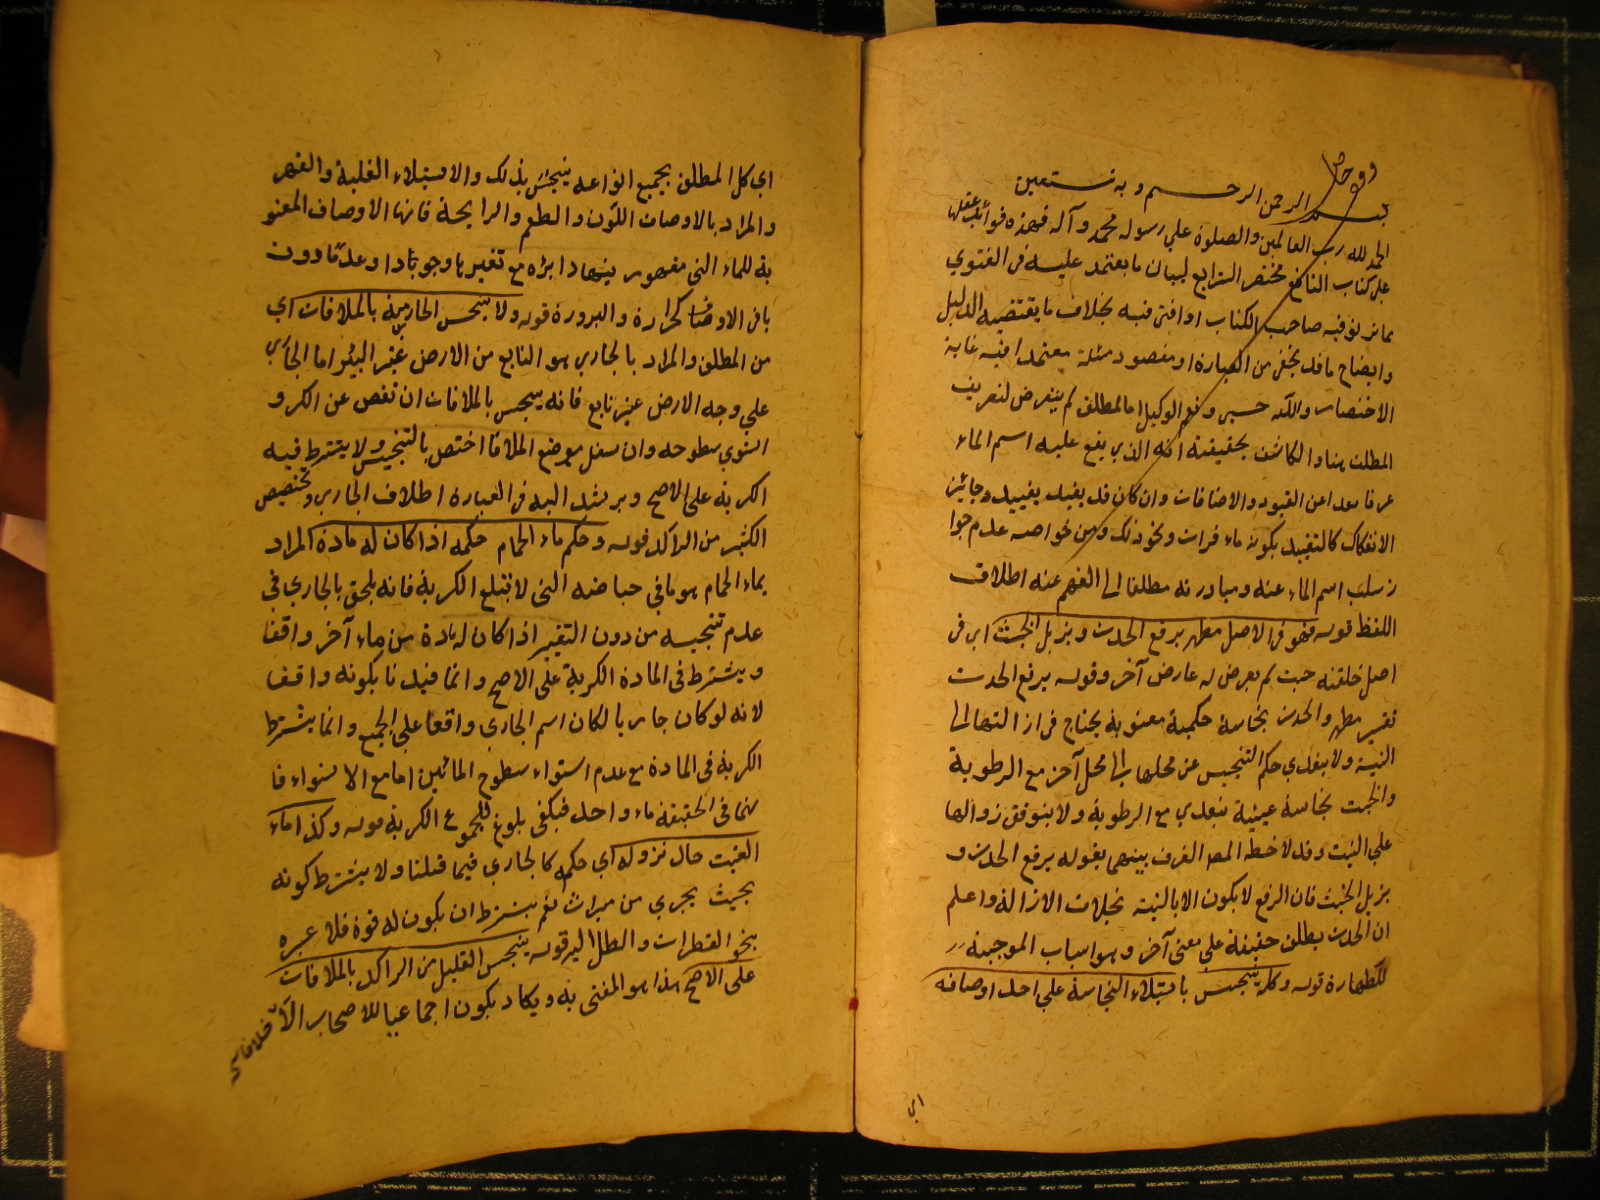 وقف خاص
بسم الله الرحمن الرحيم وبه نستعين
الحمد لله رب العالمين والصلوة علي رسوله محمد وآله فهذه فوائد علقتها
علي كتاب النافع مختصر الشرايع لبيان ما يعتمد عليه في الفتوي
مما تردد فيه صاحب الكتاب او افتي فيه بخلاف ما يقتضيه الدليل
وايضاح ما قد يخفي من العبارة او مقصود مسئلة معتمدا فيه غاية
الاختصار والله حسبي ونعم الوكيل اما المطلق لم يتعرض لتعريف
المطلق هنا والكاشف بحقيقته انه الذي يقع عليه اسم الماء
عرفا معدا عن القيود والاضافات وان كان قد يقيد بقيد وجائز
الانفكاك كالتقييد بكونه ماء فرات ونحو ذلك ومن خواصه عدم جوا
ز سلب اسم الماء عنه ومبادرته مطلقا الي الفهم عند اطلاق
اللفظ قوله فهو في الاصل مطهر يرفع الحدث ويزيل الخبث اي في
اصل خلقته حيث لم يعرض له عارض آخر وقوله يرفع الحدث
تفسير مطهر والحدث نجاسة حكمية معنوية يحتاج في ازالتها الي
النية ولا يتعدي حكم التنجيس عن محلها الي محل آخر مع الرطوبة
والخبث نجاسة عينية يتعدي مع الرطوبة ولا يتوقف زوالها
علي النية وقد لاحظ المصر الفرق بينهما بقوله يرفع الحدث و
يزيل الخبث فان الرفع لا يكون الا بالنية بخلاف الازالة واعلم
ان الحدث يطلق حقيقة علي معني آخر وهو اسباب الموجبة
للطهارة قوله وكله ينجس باستيلاء النجاسة علي احد اوصافه
اي
اي كل المطلق بجميع انواعه ينجس بذلك والاستيلاء الغلبة والقهر
والمراد بالاوصاف اللون والطعم والرايحة فانها الاوصاف المعتبر
ية للماء التي مقصور ينها دايره مع تغيرها وجودا وعدما دون
باقي الاوصاف كالحرارة والبرودة قوله ولا ينجس الجاري منه بالملاقات اي
من المطلق والمراد بالجاري هو النابع من الأرض غير البئر اما الجاري
علي وجه الارض غير نابع فانه ينجس بالملاقات ان نقص عن الكر و
استوي سطوحه وان سفل موضع الملاقا اختص بالتنجيس ولا يشترط فيه
الكرية علي الاصح ويرشد اليه في العبارة اطلاق الجاري وتخصيص
الكثير من الراكد قوله وحكم ماء الحمام حكمه اذا كان له مادة المراد
بماء الحمام هو ما في حياضه التي لا تبلغ الكرية فانه يلحق بالجاري في
عدم تنجيسه من دون التغير اذا كان له مادة من ماء آخر واقف
ويشترط في المادة الكرية علي الاصح وانما قيدنا بكونه واقف
لانه لو كان جاريا لكان اسم الجاري واقعا علي الجميع وانما يشترط
الكرية في المادة مع عدم استواء سطوح المائين اما مع الاستواء فا
نهما في الحقيقة ماء واحد فيكفي بلوغ المجموع الكرية قوله وكذا ماء
الغيث حال نزوله اي حكمه كالجاري فيما قبلنا ولا يشترط كونه
بحيث يجري من ميزاب نعم يشترط ان يكون له قوة فلا عبره
بنحو القطرات والطل اليسر قوله ينجس القليل من الراكد بالملاقات
علي الاصح هذا هو المفتي به ويكاد يكون اجماعيا للاصحاب الآن